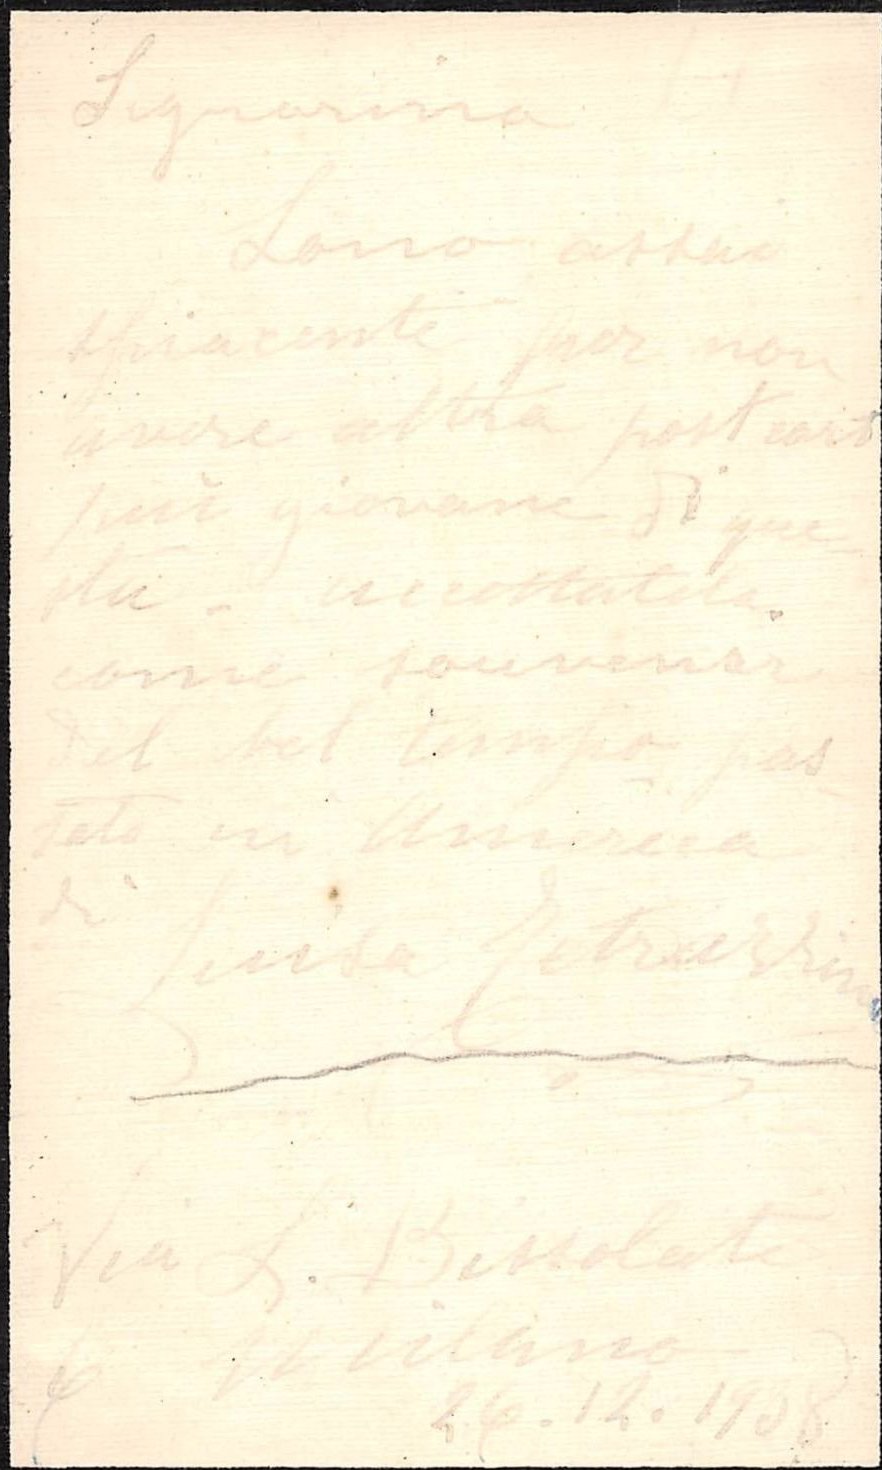 Signorina
Sono assai
spiacente per non
avere altra post card
più giovane di que
sta - accettatela
come souvenir
del bel tempo pas
sato in America
di
Luisa Tetrazzini
Via L. Bissolati
6 Milano
26.12.1938